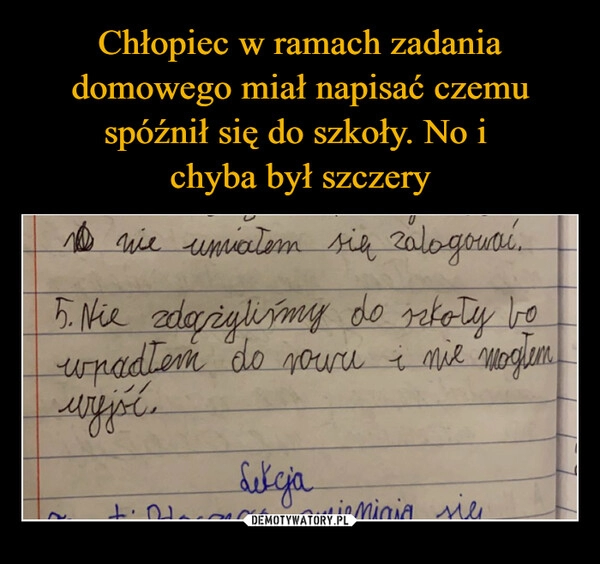 Chłopiec w ramach zadania
domowego miał napisać czemu
spóźnił się do szkoły. No i
chyba był szczery
nie umiałem się zalogować.
5. Nie zdążyliśmy do szkoły bo
wpadłem do rowu i nie mogłem
wyjść.
Lekcja
się
DEMOTYWATORY.PL